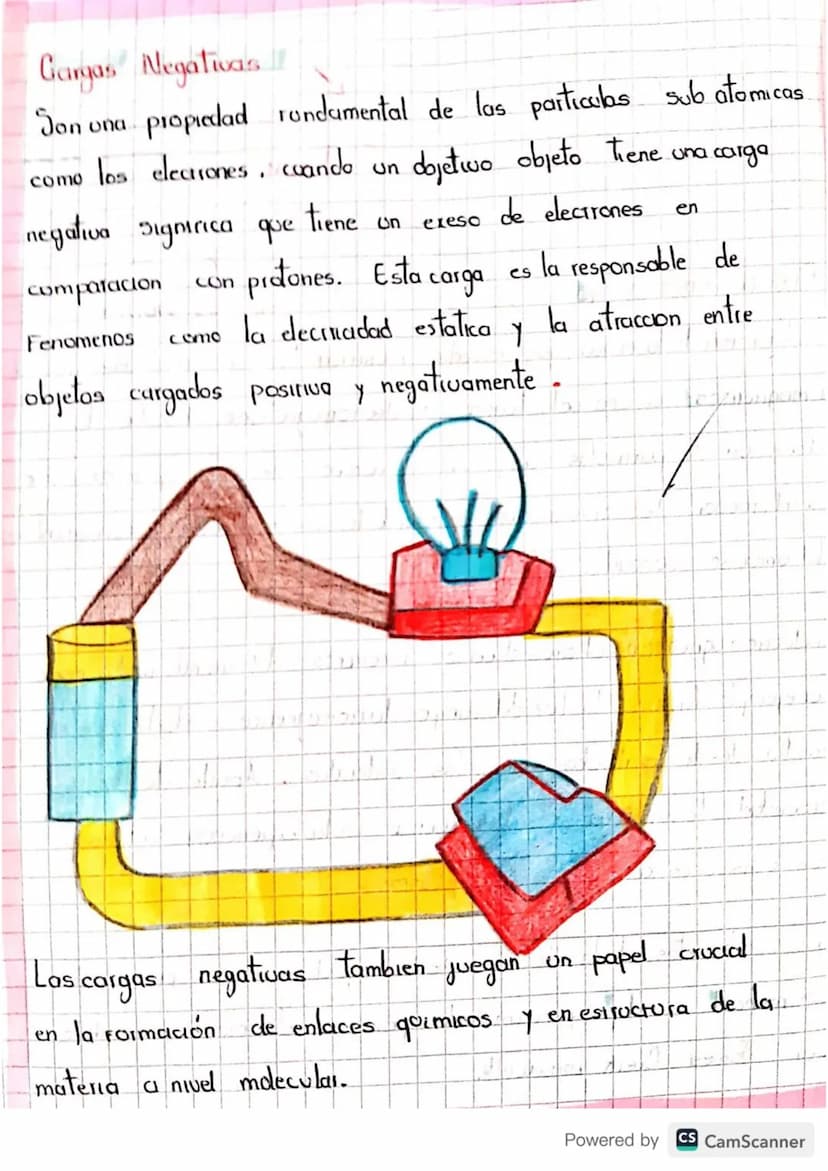 Cargas Negativas
Son una propiedad fundamental de las particulas sub atomicas
como los electrones. cuando un objetivo objeto tiene una carga
negativa significa que tiene un exeso de electrones en
comparacion con protones. Esta carga es la responsable de
Fenomenos como la electricidad estatica y la atraccion entre
objetos cargados positiva y negativamente.
Las cargas negativas tambien juegan un papel crucial
en la formación de enlaces quimicos y en estructura de la
materia a nivel molecular.
Powered by CS CamScanner